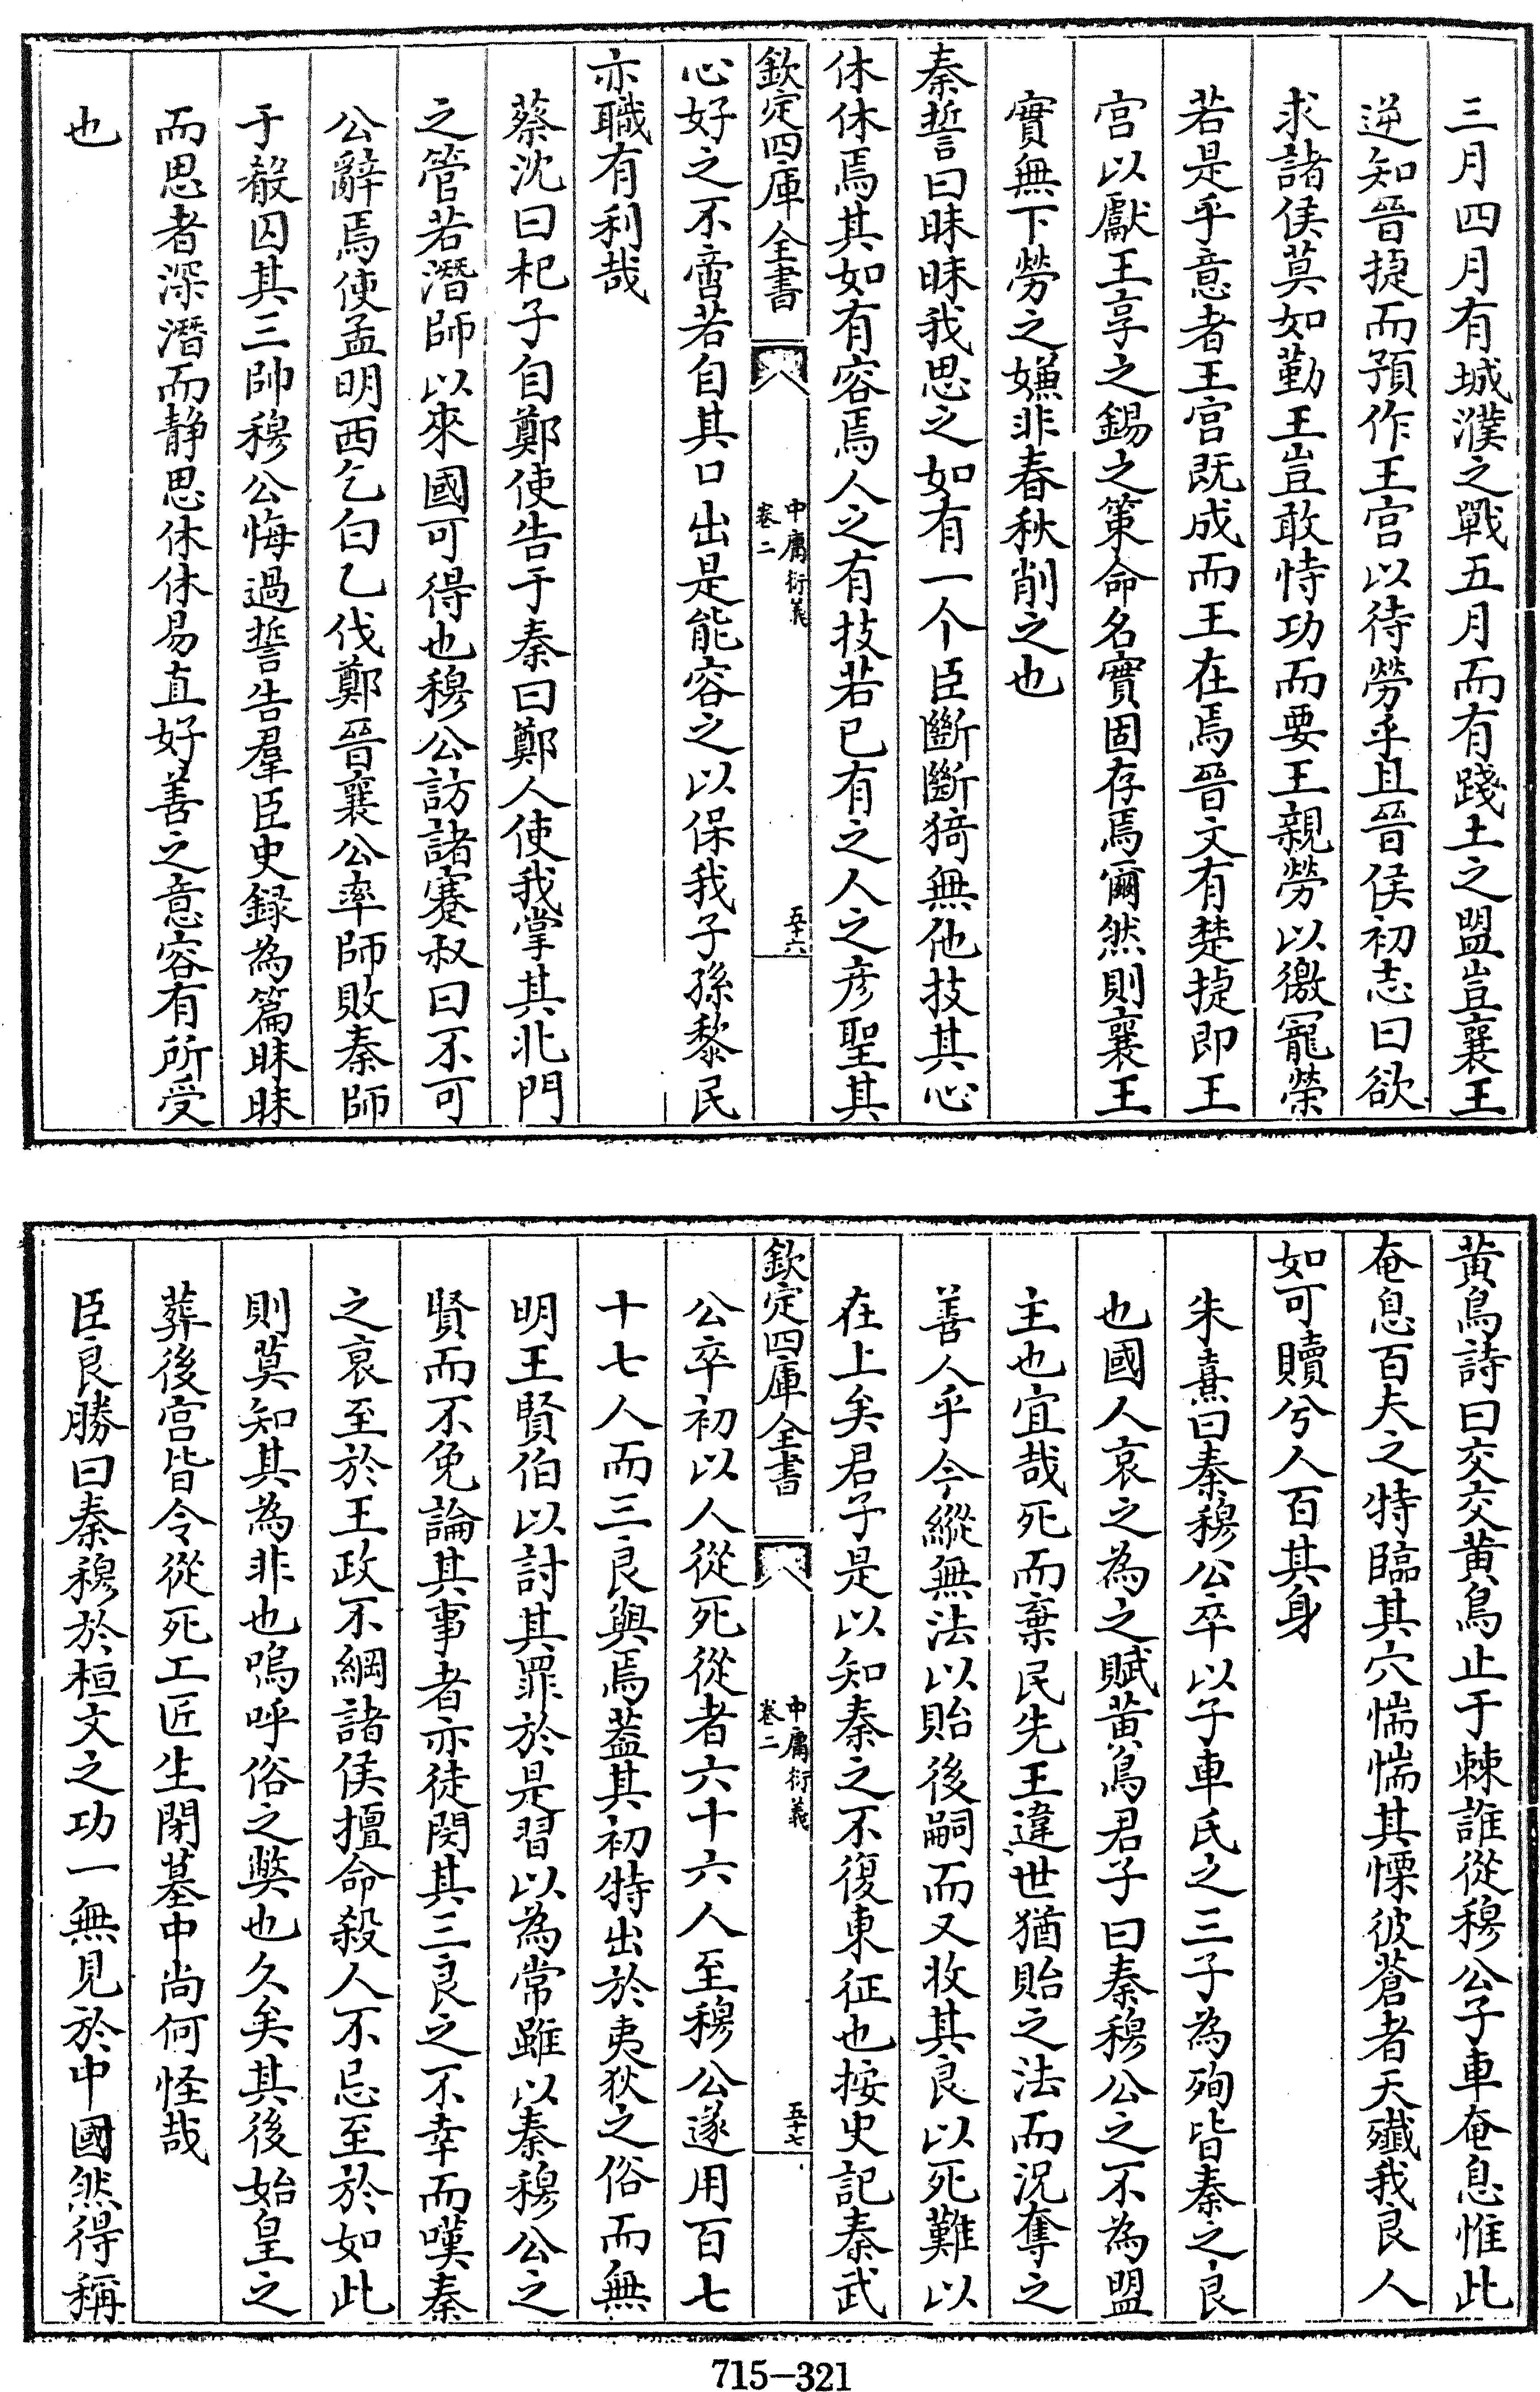 三月四月有城濮之戰五月而有踐土之盟豈襄王
逆知晉捷而預作王宫以待勞乎且晉侯初志曰欲
求諸侯莫如勤王豈敢恃功而要王親勞以徼寵榮
若是乎意者王宫既成而王在焉晉文有楚捷即王
宫以獻王享之錫之策命名實固存焉爾然則襄王
實無下勞之嫌非春秋削之也
秦誓曰昧昧我思之如有一个臣斷斷猗無他技其心
休休焉其如有容焉人之有技若已有之人之彦聖其
欽定四庫全書
中庸衍義
卷二
五十六
心好之不啻若自其口出是能容之以保我子孫黎民
亦職有利哉
蔡沈曰杞子自鄭使告于秦曰鄭人使我掌其北門
之管若潛師以來國可得也穆公訪諸蹇叔曰不可
公辭焉使孟明西乞白乙伐鄭晉襄公率師敗秦師
于殽囚其三帥穆公悔過誓告羣臣史録為篇昧昧
而思者深潛而静思休休易直好善之意容有所受
也
黄鳥詩曰交交黄鳥止于棘誰從穆公子車奄息惟此
奄息百夫之特臨其穴惴惴其慄彼蒼者天殲我良人
如可贖兮人百其身
朱熹曰秦穆公卒以子車氏之三子為殉皆秦之良
也國人哀之為之賦黄鳥君子曰秦穆公之不為盟
主也宜哉死而棄民先王違世猶貽之法而況奪之
善人乎今縱無法以貽後嗣而又收其良以死難以
在上矣君子是以知秦之不復東征也按史記秦武
欽定四庫全書
中庸衍義
卷二
五十七
公卒初以人從死從者六十六人至穆公遂用百七
十七人而三良與焉葢其初特出於夷狄之俗而無
明王賢伯以討其罪於是習以為常雖以秦穆公之
賢而不免論其事者亦徒閔其三良之不幸而嘆秦
之衰至於王政不綱諸侯擅命殺人不忌至於如此
則莫知其為非也嗚呼俗之獘也久矣其後始皇之
葬後宫皆令從死工匠生閉墓中尚何怪哉
臣良勝曰秦穆於桓文之功一無見於中國然得稱
715-321